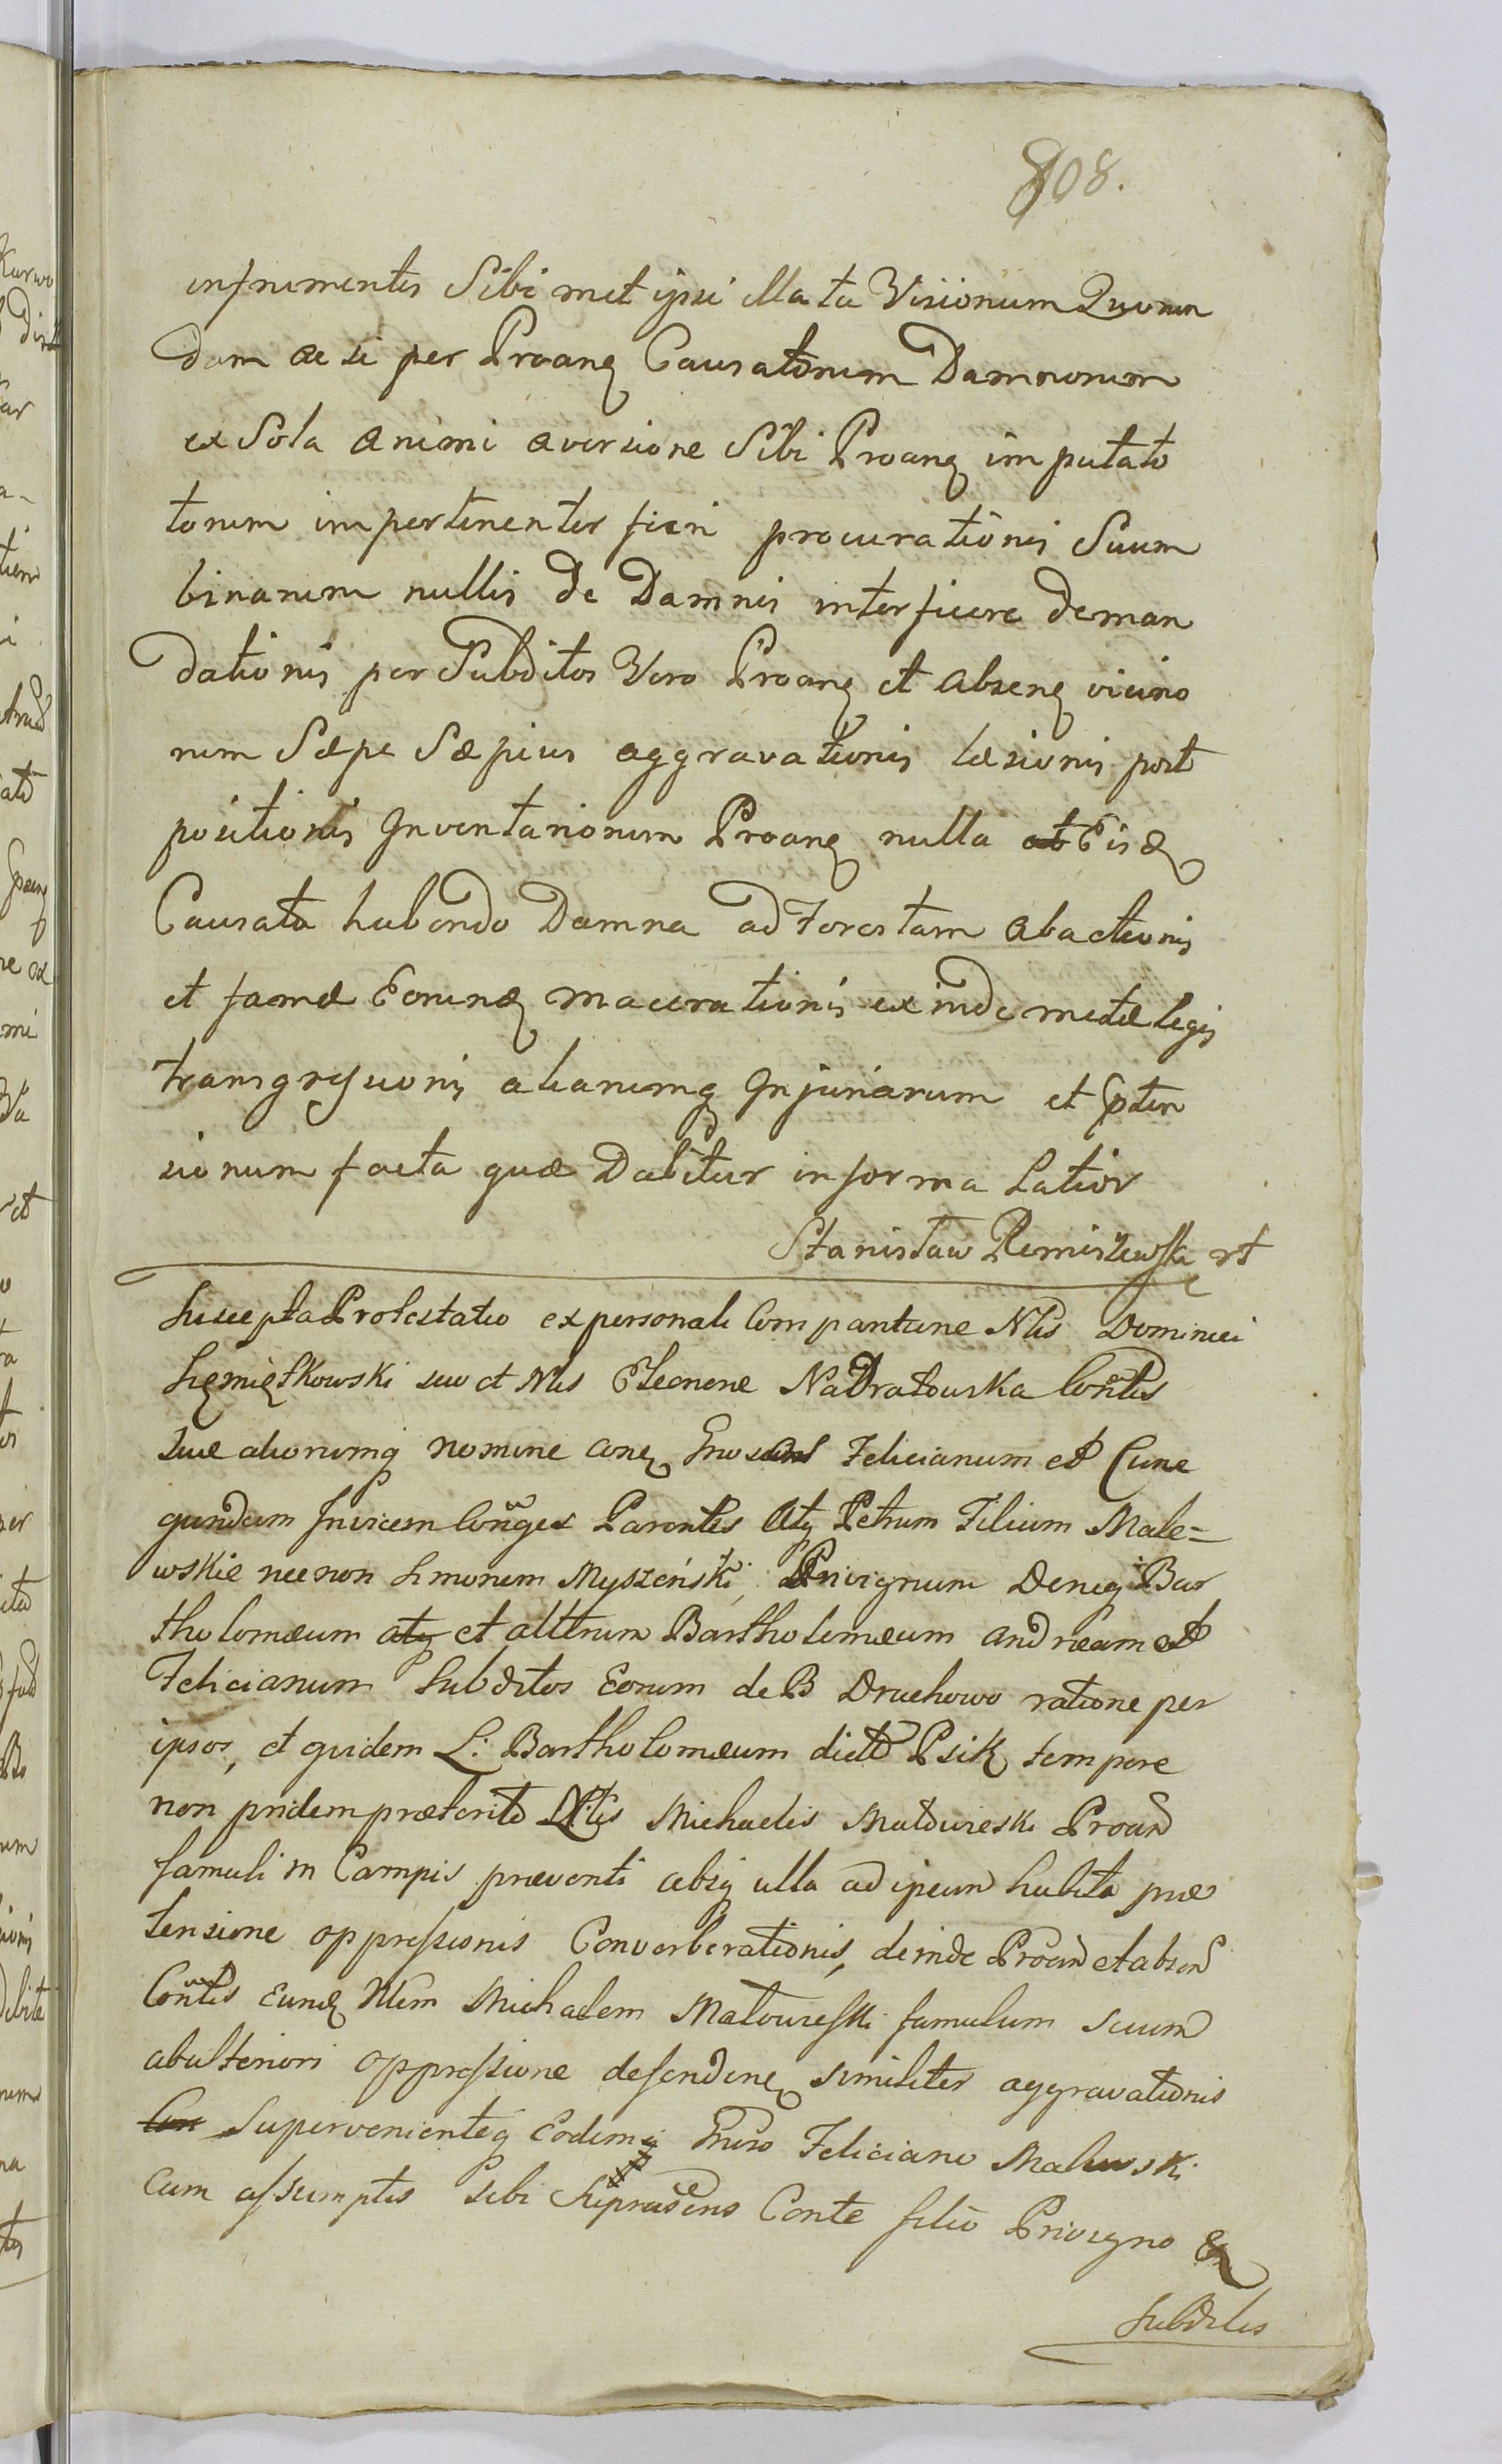 808.
in frumentis Sibimet ipsi illata Visionum Quorun
dam ac si per Proanȩ Causatorum Damnorum
ex Sola animi aversione Sibi Proanȩ imputato
torum impertinenter fieri procurationis Suum
binarum nullis de Damnis interficere deman
dationis per Subditos Vero Proanȩ et absenȩ vicino
rum Sæpe Sæpius aggravationis læsionis post
positionis Inventariorum Proanȩ nulla ab Eisd
Causata habendo Damna ad Forestam abactionis
et famæ Eorund macerationis ex inde metæ legis
transgressionis aliarumq Injuriarum et Pten
sionum facta quæ Dabitur in forma Latior
Stanisław Remiszewski rt
Suscepta Protestatio ex personali Comparitione Nlis Dominici
Szemiętkowski suo et Nlis Eleonore Nadratowska Contis
suæ aliorumq nomine conȩ Gnosos Felicianum et Cune
gundam Invicem Conges Parentes atq Petrum Filium Male=
wskie nec non Simonem Myszeński Privignum Deniq Bar
tholomæum et alterum Bartholomæum Andream et
Felicianum Subditos Eorum de B Druchowo ratione per
ipsos, et quidem L: Bartholomæum dicto Psik tempore
non pridem præterito Nlis Michaelis Matowieski Proan
famuli in Campis præventi absq ulla ad ipsum habita præ
tensione oppressionis Converberationis, deinde Proan et absen
Contis Eund Nlem Michaelem Matowieski famulum suum
ab ulteriori oppressione defendenȩ similiter aggravationis
Supervenienteq Eodemq Gnroso Feliciano Malewski
cum assumptis sibi Suprascens Conte filio Privigno &
Subditis